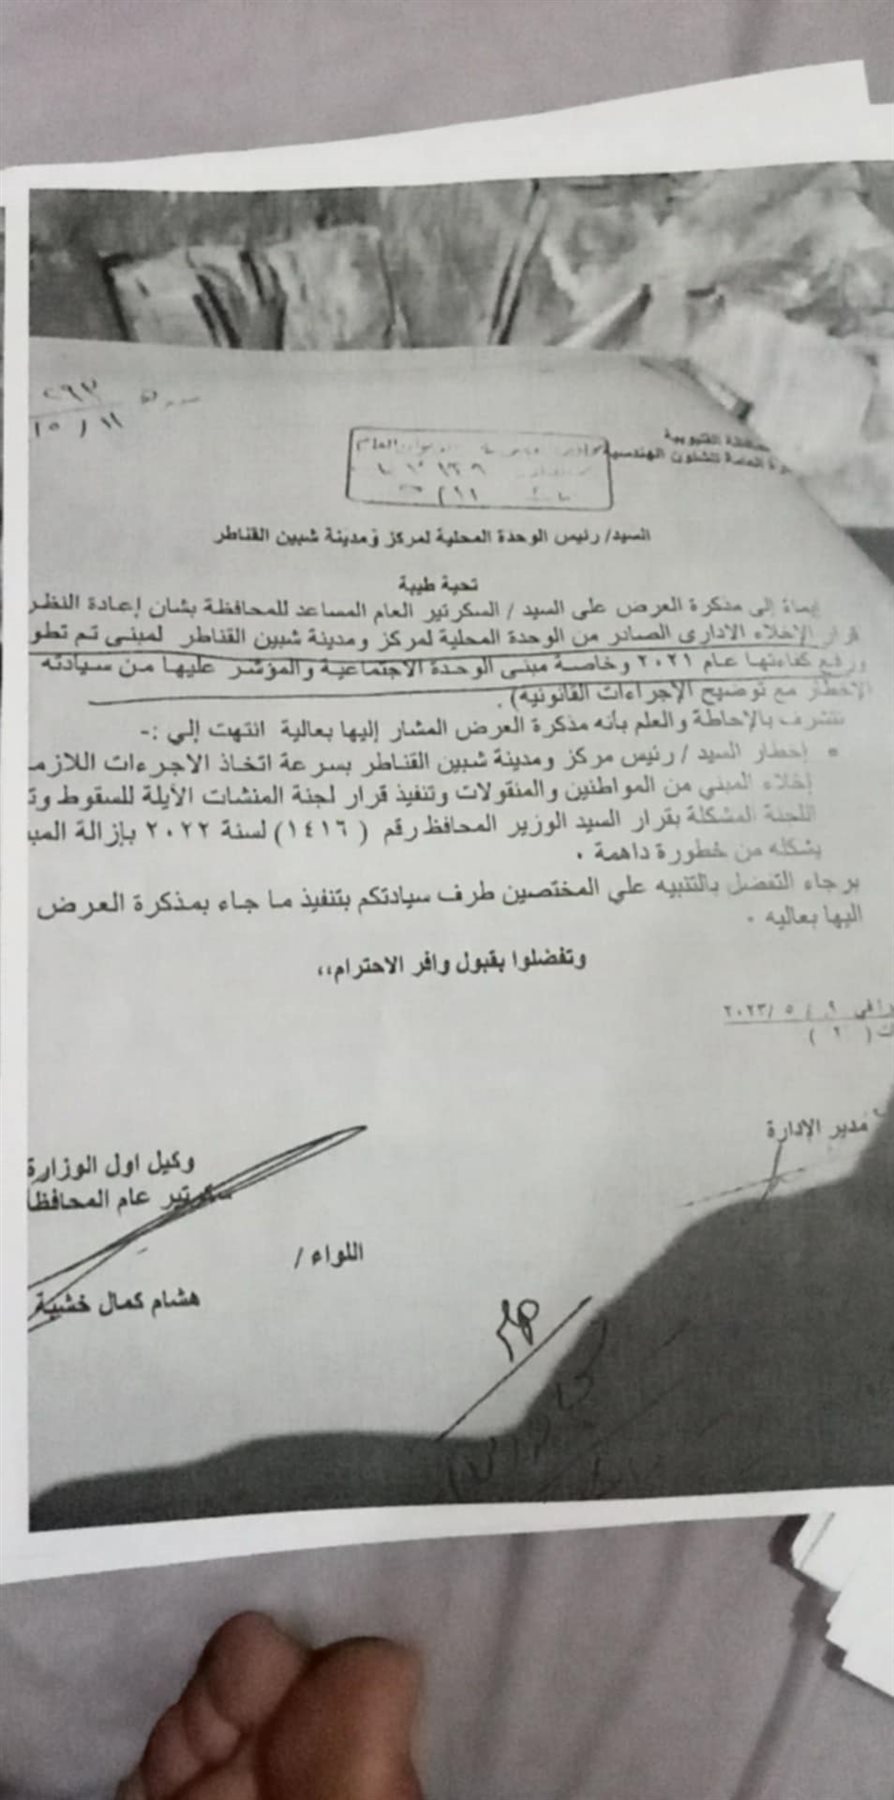 ٢٩٣
١١ / ٥
محافظة القليوبية
العامة للشئون الهندسية
السيد/ رئيس الوحدة المحلية لمركز ومدينة شبين القناطر
تحية طيبة
إيماءً إلى مذكرة العرض على السيد / السكرتير العام المساعد للمحافظة بشأن إعادة النظر
قرار الإخلاء الاداري الصادر من الوحدة المحلية لمركز ومدينة شبين القناطر لمبنى تم تطو
ورفع كفاءتها عام ٢٠٢١ وخاصة مبنى الوحدة الاجتماعية والمؤشر عليها من سيادته
الإخطار مع توضيح الإجراءات القانونيه) .
نتشرف بالإحاطة والعلم بأنه مذكرة العرض المشار إليها بعالية انتهت إلي :-
• إخطار السيد / رئيس مركز ومدينة شبين القناطر بسرعة اتخاذ الاجرءات اللازمـ
إخلاء المبني من المواطنين والمنقولات وتنفيذ قرار لجنة المنشات الآيلة للسقوط وتـ
اللجنة المشكلة بقرار السيد الوزير المحافظ رقم ( ١٤١٦ ) لسنة ٢٠٢٢ بإزالة المبـ
يشكله من خطورة داهمة .
برجاء التفضل بالتنبيه علي المختصين طرف سيادتكم بتنفيذ ما جاء بمذكرة العرض
اليها بعاليه .
وتفضلوا بقبول وافر الاحترام،،
في ٩ / ٥ /٢٠٢٣
( ٢ )
مدير الإدارة
وكيل اول الوزارة
سكرتير عام المحافظة
اللواء /
هشام كمال خشبة